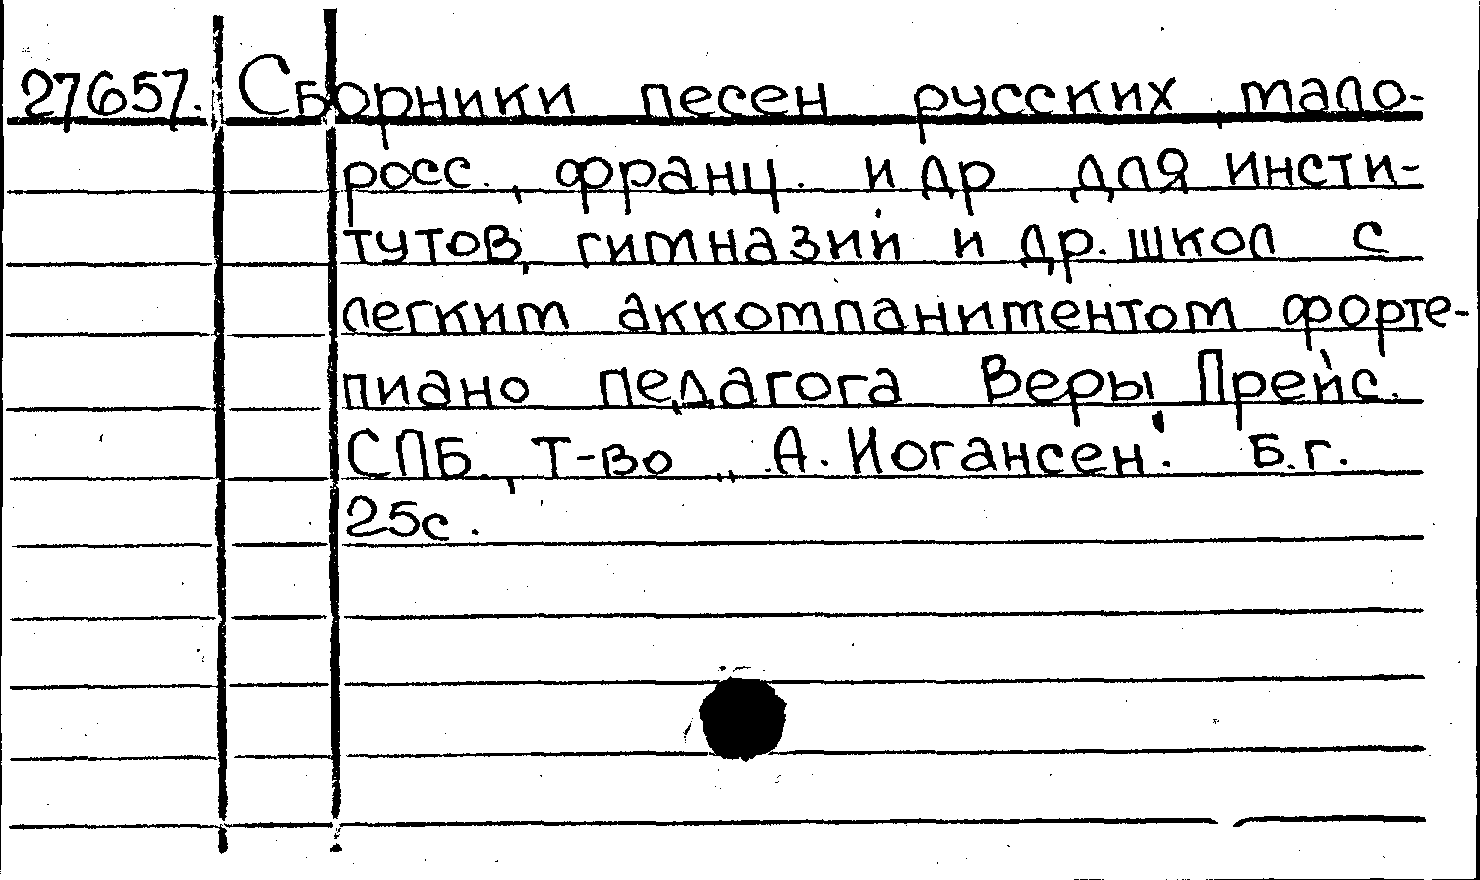 27657. Сборники песен русских, мало-
росс., франц. и др для инсти-
тутов, гимназий и др. школ с
легким аккомпаниментом форте-
пиано педагога Веры Прейс.
СПБ., Т-во „А. Иогансен". Б.г.
25с.